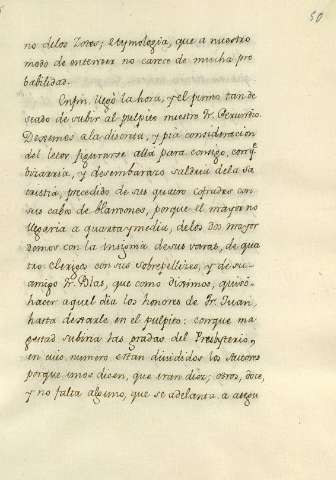 50
no delos Zotes; etymologia, que a nuestro
modo de entender no carece de mucha pro
babilidad.
Enfin llegò la hora, y el punto tan de
seado de subir al pulpito nuestro Fr. Gerundio
Dexemos ala discreta, y pia consideracion
del letor figurarse allà para consigo, con q.e
bizarria, y desembarazo saldria dela sa
cristia, precedido de sus quatro cofrades con
sus cabos de blandones, porque el mayor no
llegaria a quarta y media, delos dos mayor
domos con la insignia de sus varas, de qua
tro Clerigos con sus sobrepellizes, y de su
amigo Fr. Blas, que como diximos, quiso
hacer aquel dia los honores de Fr. Juan,
hasta dexarle en el pulpito: con que ma
gestad subiria las gradas del Presbyterio,
en cuio numero estan divididos los Autores
porque unos dicen, que eran diez; otros, doce,
y no falta alguno, que se adelanta a asegu